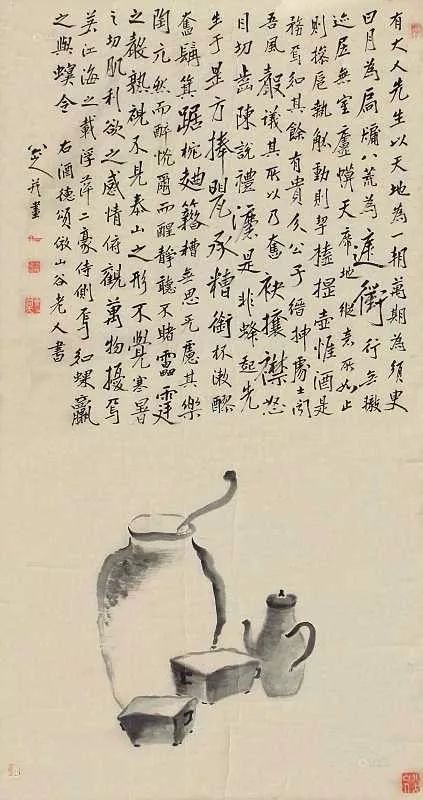 有大人先生以天地為一朝萬期為須臾
日月為扃牖八荒為庭衢行無轍
迹居無室廬幕天席地縱意所如止
則操卮執觚動則挈榼提壺惟酒是
務焉知其餘有貴介公子縉紳處士聞
吾風聲議其所以乃奮袂攘襟怒
目切齒陳說禮灋是非蜂起先
生于是方捧甖承糟銜杯漱醪
奮髯箕踞枕麯籍糟無思無慮其樂
兀然而醉恍爾而醒靜聽不睹雷霆
之聲熟視不見泰山之形不覺寒暑
之切肌利欲之感情俯觀萬物擾焉
若江海之載浮萍二豪侍側焉如蜾蠃
之與螟令
右酒德頌倣山谷老人書
八大并畫